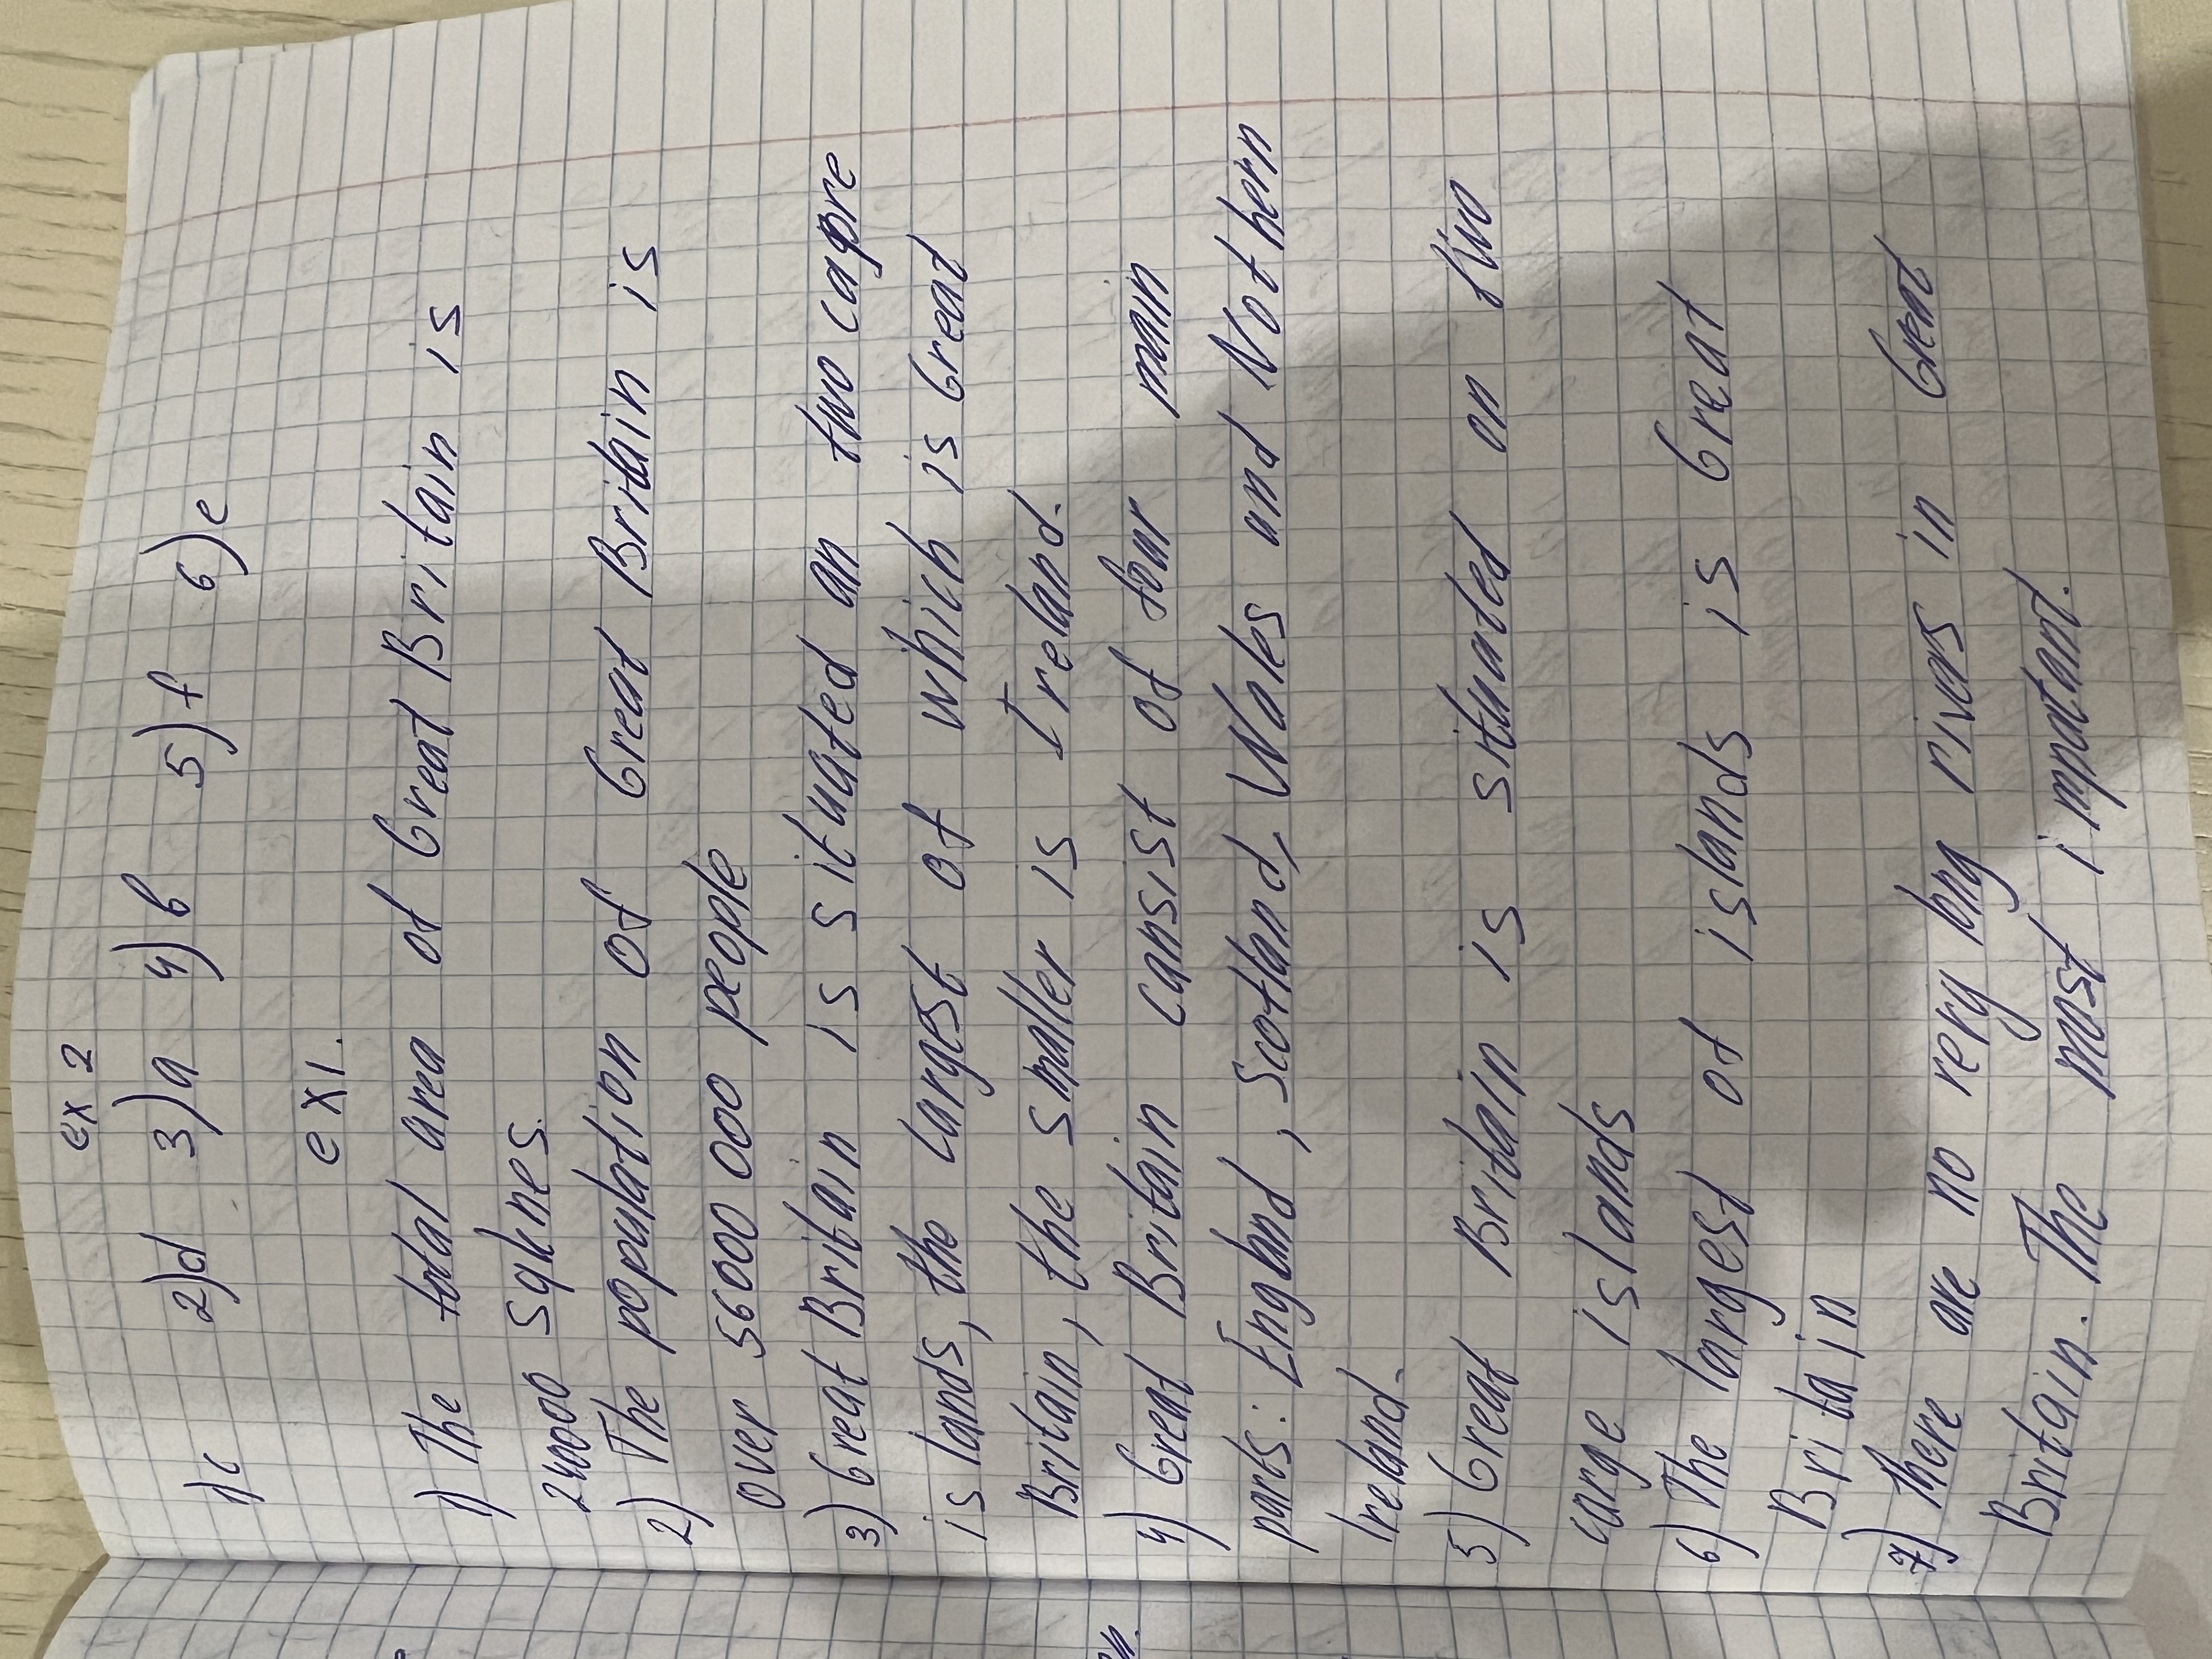 ex 2
1)c 2)d 3)a 4)b 5)f 6)e
ex 1.
1) The total area of Great Britain is
244000 sqkmes.
2) The population of Great Britain is
over 56000 000 people
3) Great Britain is situated an two
islands, the Largest of which is Great
Britain, the smaller is Ireland.
4) Great Britain cansist of four main
parts: England, Scotland, Wales and Nothern
Ireland.
5) Great Britain is situated on two
Large islands
6) The largest of islands is Great
Britain
7) There are no very long rivers in Great
Britain. The most impottant.